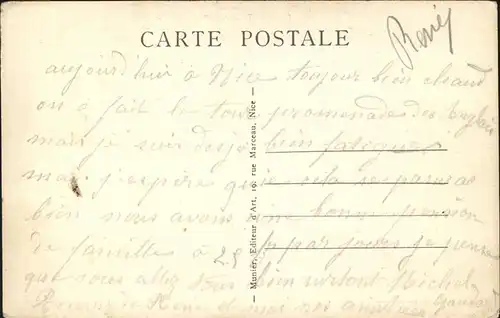 CARTE POSTALE
René
aujourd'hui à Nice toujour bien chaud
on a fait la tour promenade des Anglais
mais je suis desja bien fatiguee
mais j'espère que cela se passeras
bien nous avons une bonne pension
de famille à 25 f par jours je pense
que vous allez tous bien surtout Michel
René et moi
Munier, Editeur d'Art, 10, rue Marceau, Nice